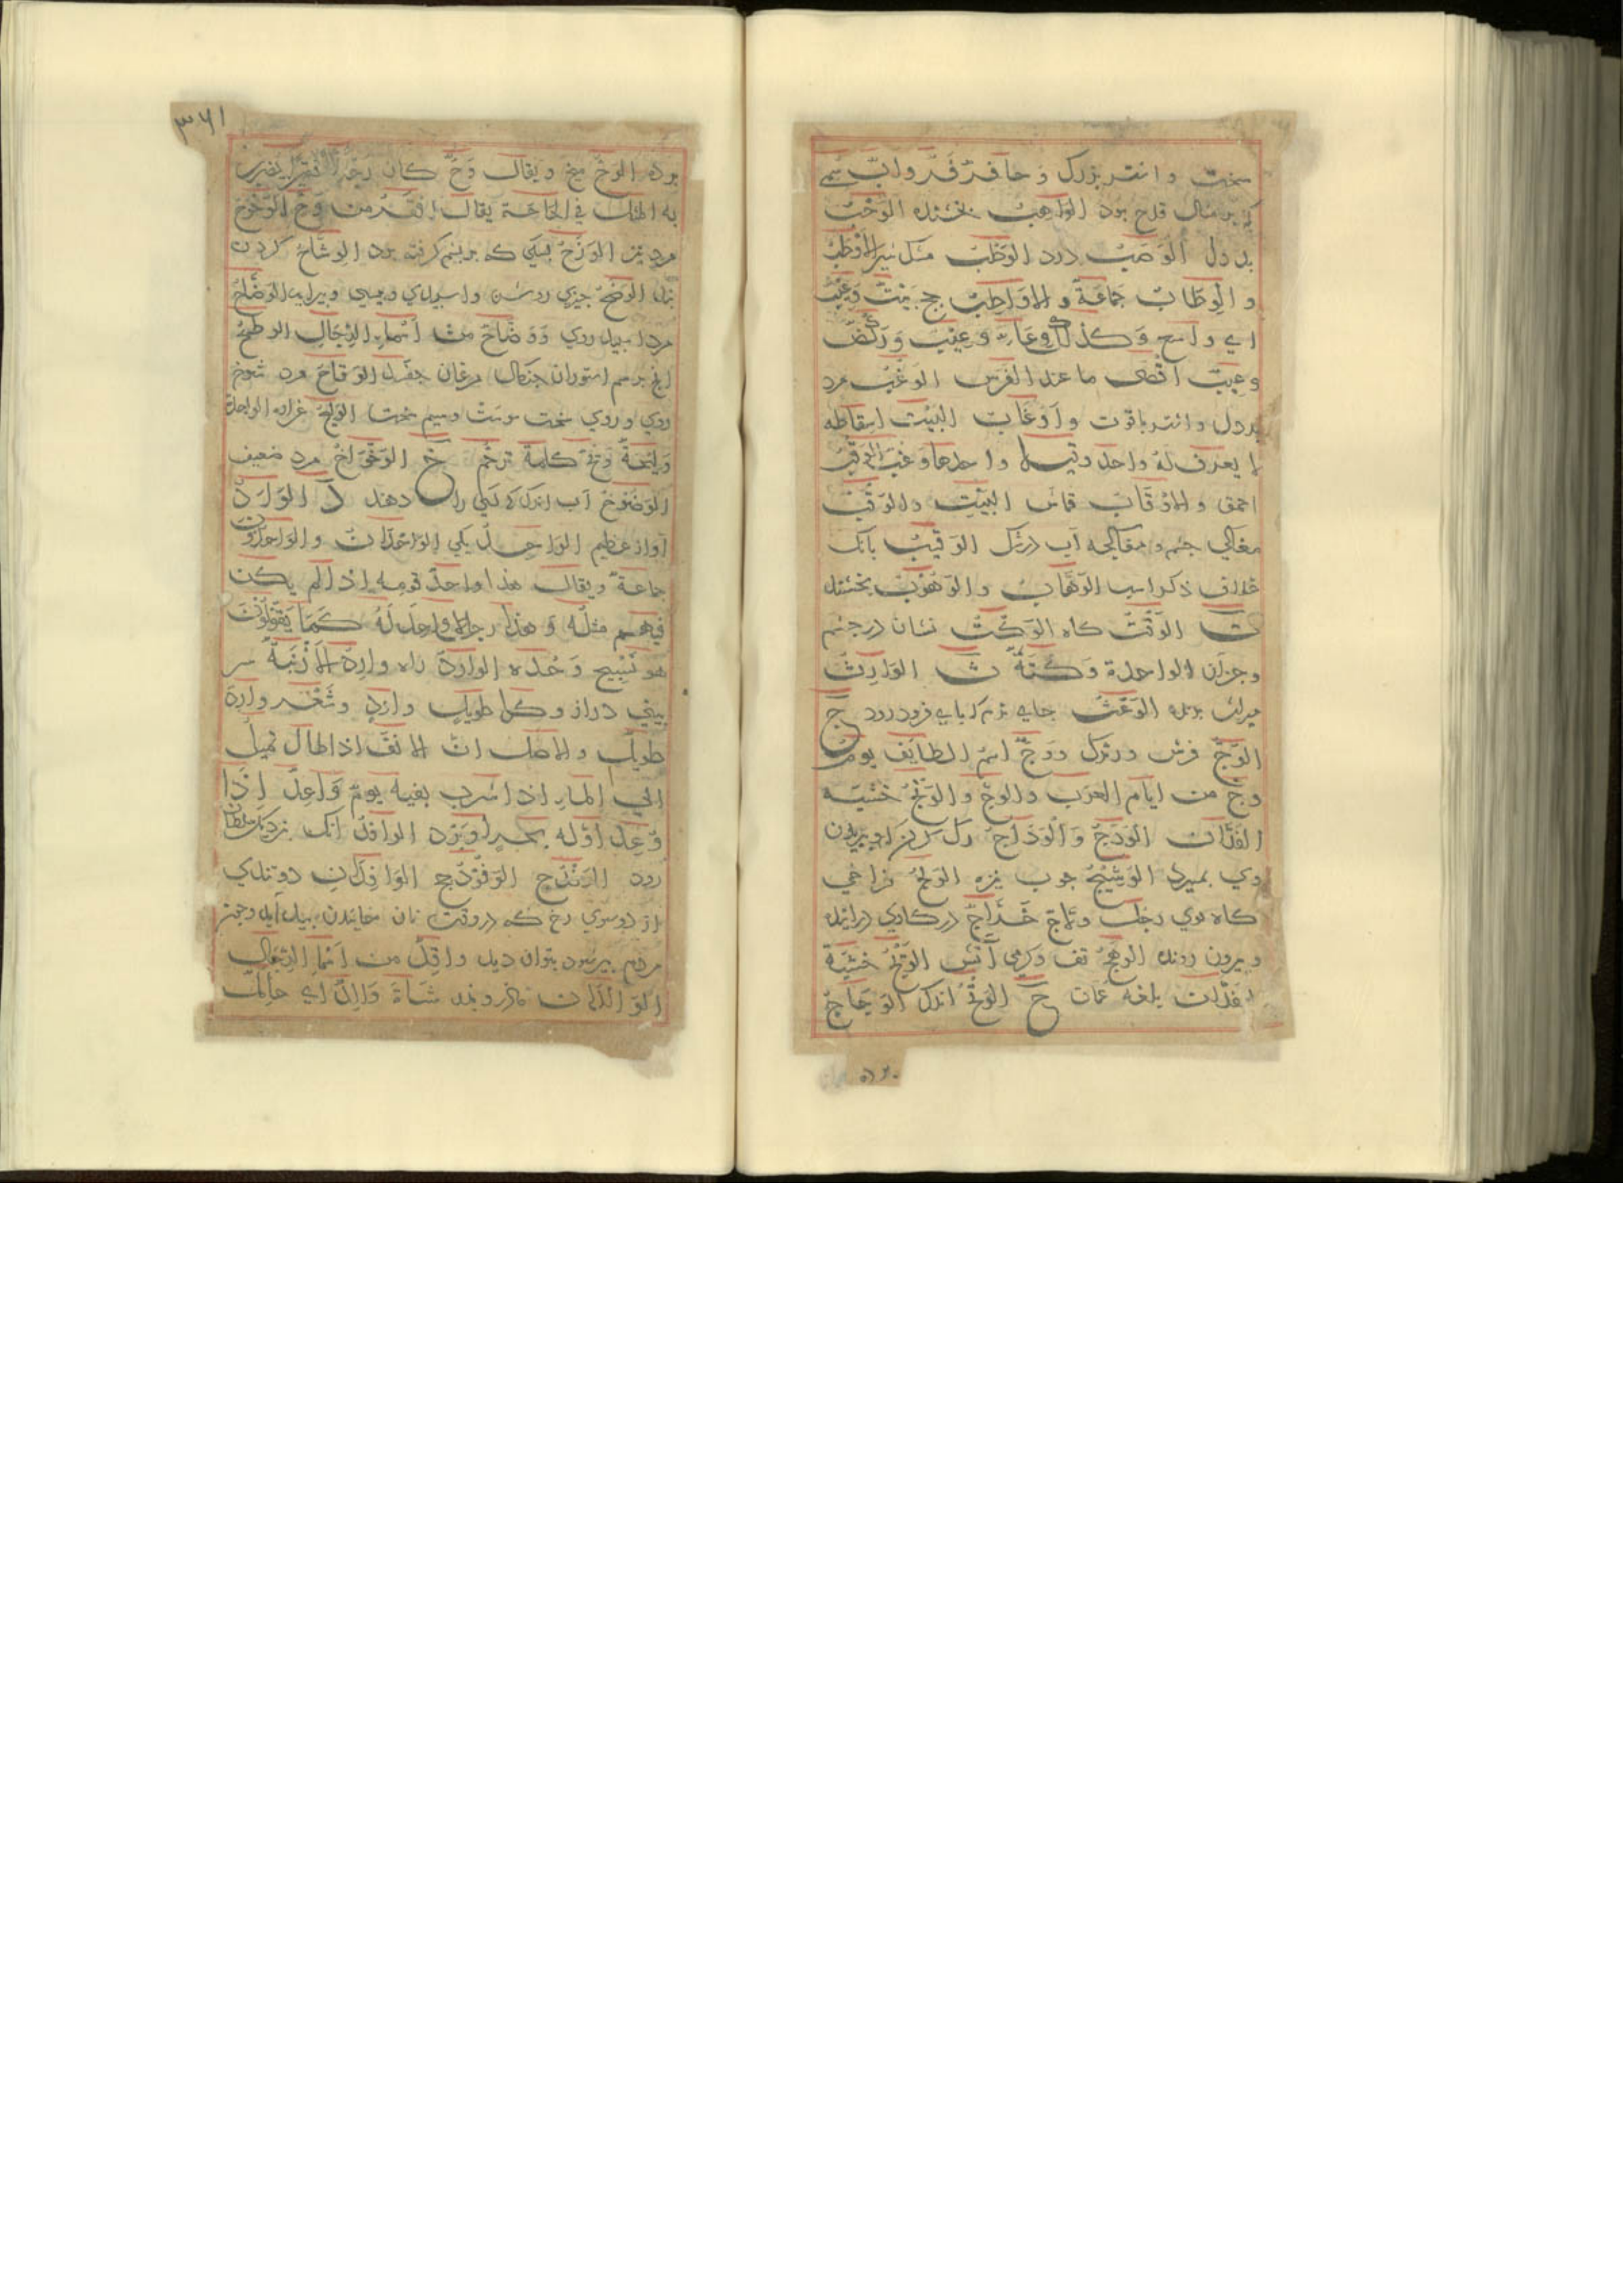 سخت وانتر بزرک وحافر قر واب سمی
که بر مثال قدح بود الواهب بخشنده الوخب
بد دل الوصب درد الوطب مشک شیر الاوطب
والوطاب جماعة والاواطب جج بیت وعیب
ای واسع وکذلک وعاء وعیب ورکض
وعیب اقصی ما عند الفرس الوغب مرد
بد دل واشتر باقوت واوغاب البیت اسقاطه
لا یعرف له واحد وقیل واحدها وغب الوقب
احمق والاوقاب قماش البیت والوقب
مغاکی چشم ومغاکچه آب درسنک الوقیب بانک
غلاف ذکر اسب الوهاب والوهوب بخشنده
ت الوقت کاه الوکت نشان در چشم
وجزان الواحدة وکتة ث الوارث
میراث برنده الوعث جای نرم که پای فرو رود ج
الوج فرس ودرنک ووج اسم الطایف یوم
وج من ایام العرب والوج والونج خشبة
الفدان الودج والوداج رک کردن که چون ببریدن
وی بمیرد الوشیج چوب نیزه الولج فراخی
کاه موی رجل ولاج خراج در کاری درآینده
وبیرون رونده الوهج تف وکرمی آتش الویج خشبة
الفدان بلغه عمان ح الوتح اندک الوجاح
پرده الوح میخ ویقال وح کان رجلا فقیرا یضرب
به المثل فی الحاجة یقال افقر من وح الوحوح
مرد تیز الوذح پشکی که بر پشم کرفته بود الوشاح کردن
بند الوضح چیزی روشن واسپیدی وپیسی وپیرایه الوضاح
مرد اسپید روی ووضاح من اسماء الرجال الوطح
آنچ بر سم استوران چنکال مرغان جفد الوقاح مرد شوخ
روی وروی سخت سوست وسم سخت الولیح غراره الواحدة
ولیحة ویح کلمة ترحم خ الوخواخ مرد ضعیف
الوضوخ آب اندک که کسی را دهند د الوارد
آواز عظیم الواحد یکی الواحدان والواحدون
جماعة ویقال هذا واحد قومه اذا لم یکن
فیهم مثله وهذا رجل لا واحد له کما یقولون
هو نسیج وحده الواردة راه وارد الارنبة سر
بینی دراز وکل طویل وارد وشعر وارد
طویل والاصل ان الانف اذا طال یمیل
الی الماء اذا شرب بفیه یوم واعد اذا
وعد اوله بحر او برد الوافد آنک نزدیک سلطان
رود الوفود ج الوافدان دو تندی
از دو سوی رخ که در وقت نان خاییدن پدید آید وچون
مردم پیر شود بتوان دید واقد من اسماء الرجال
الوالدان مادر وپدر شاة والد ای حامل
۳۶۱